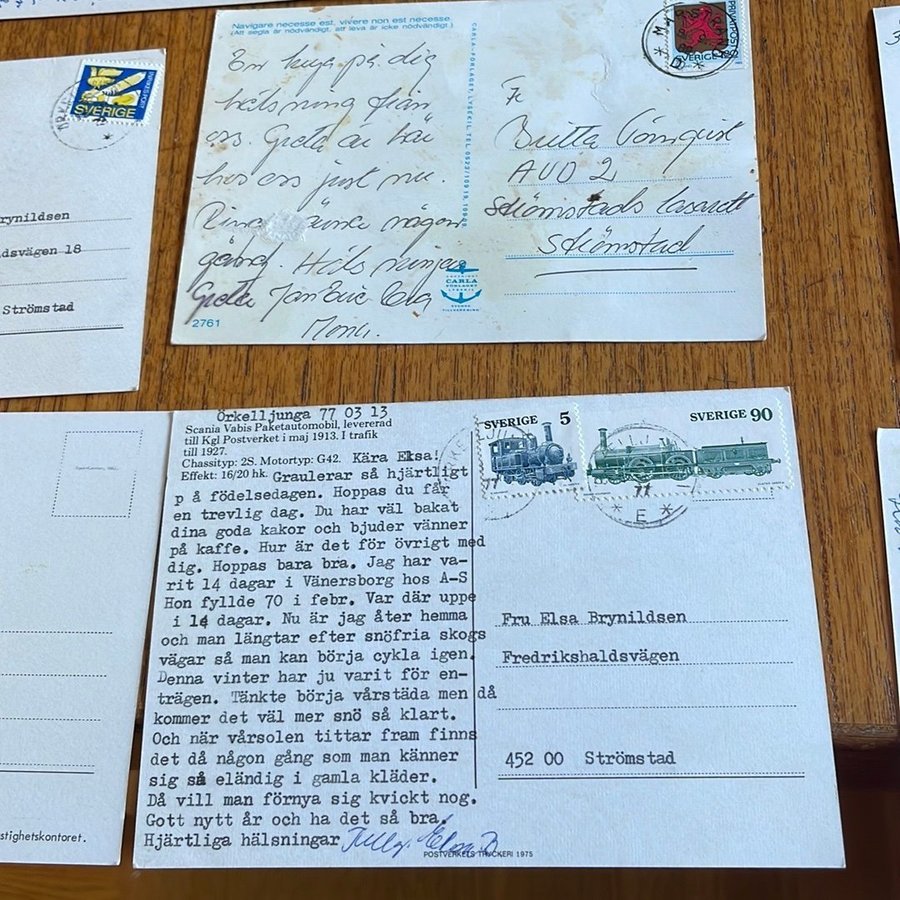 Navigare necesse est, vivere non est necesse.
(Att segla är nödvändigt, att leva är icke nödvändigt.)
En krya på dig
hälsning från
oss. Greta är här
hos oss just nu.
Ring någon
gång. Hälsningar
Greta Jan Eric
2761
CARLA-FÖRLAGET, LYSEKIL, TEL. 0523/10919, 10909
CARLA
FÖRLAGET
LYSEKIL
PRIVATPOST
SVERIGE
Britta
AVD 2
Strömstads lasarett
Strömstad
SVERIGE
INRIKESPORT
rynildsen
dsvägen 18
Strömstad
stighetskontoret.
Örkelljunga 77 03 13
Scania Vabis Paketautomobil, levererad
till Kgl Postverket i maj 1913. I trafik
till 1927.
Chassityp: 2S. Motortyp: G42. Kära Elsa!
Effekt: 16/20 hk. Graulerar så hjärtligt
p å födelsedagen. Hoppas du får
en trevlig dag. Du har väl bakat
dina goda kakor och bjuder vänner
på kaffe. Hur är det för övrigt med
dig. Hoppas bara bra. Jag har va-
rit 14 dagar i Vänersborg hos A-S
Hon fyllde 70 i febr. Var där uppe
i 14 dagar. Nu är jag åter hemma
och man längtar efter snöfria skogs
vägar så man kan börja cykla igen.
Denna vinter har ju varit för en-
trägen. Tänkte börja vårstäda men då
kommer det väl mer snö så klart.
Och när vårsolen tittar fram finns
det då någon gång som man känner
sig så eländig i gamla kläder.
Då vill man förnya sig kvickt nog.
Gott nytt år och ha det så bra.
Hjärtliga hälsningar
POSTVERKETS TRYCKERI 1975
SVERIGE 5
SVERIGE 90
77
77
* E *
Fru Elsa Brynildsen
Fredrikshaldsvägen
452 00 Strömstad